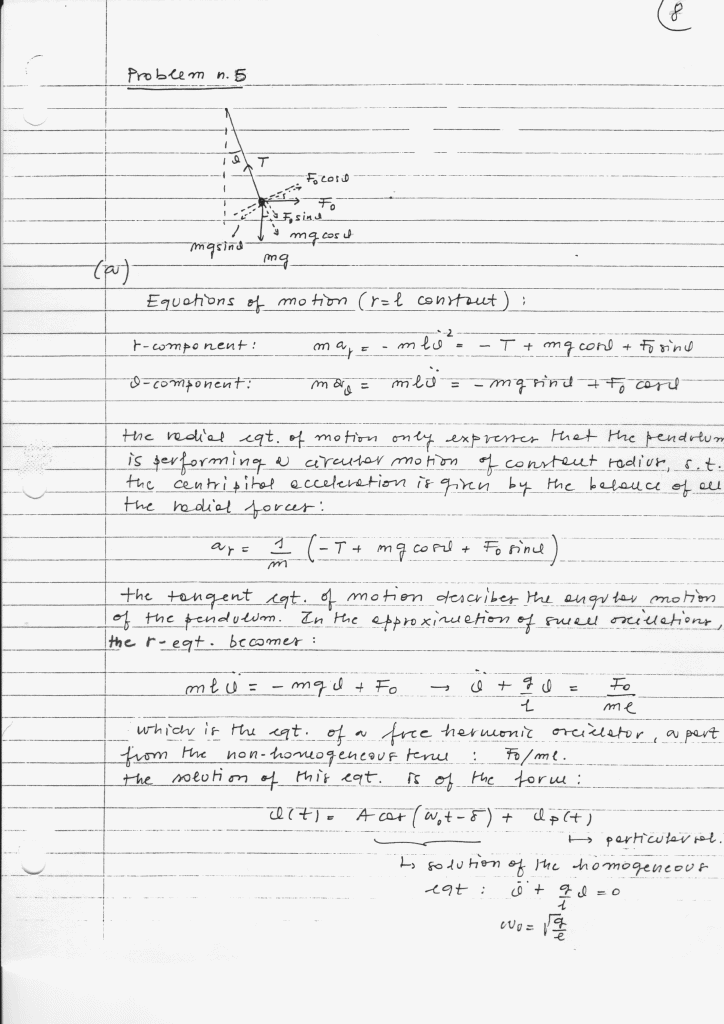 8
Problem n. 5
ϑ T
F₀cosϑ
F₀
F₀sinϑ
mgcosϑ
mgsinϑ
mg
(a)
Equations of motion (r=l constant) :
r-component: m aᵣ = - m l ϑ̇² = - T + mg cosϑ + F₀ sinϑ
ϑ-component: m a_ϑ = m l ϑ̈ = - mg sinϑ + F₀ cosϑ
the radial eqt. of motion only expresses that the pendulum
is performing a circular motion of constant radius, s.t.
the centripital acceleration is given by the balance of all
the radial forces :
aᵣ = 1/m (- T + mg cosϑ + F₀ sinϑ)
the tangent eqt. of motion describes the angular motion
of the pendulum. In the approximation of small oscillations,
the r-eqt. becomes :
m l ϑ̈ = - mg ϑ + F₀ → ϑ̈ + g/l ϑ = F₀/ml
which is the eqt. of a free harmonic oscillator, a part
from the non-homogeneous term : F₀/ml.
the solution of this eqt. is of the form :
ϑ(t) = A cos (ω₀t - δ) + ϑp(t)
↳ particular sol.
↳ solution of the homogeneous
eqt : ϑ̈ + g/l ϑ = 0
ω₀ = √g/l